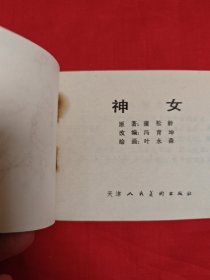 神 女
原著：蒲松龄
改编：冯育坤
绘画：叶永森
天津人民美术出版社